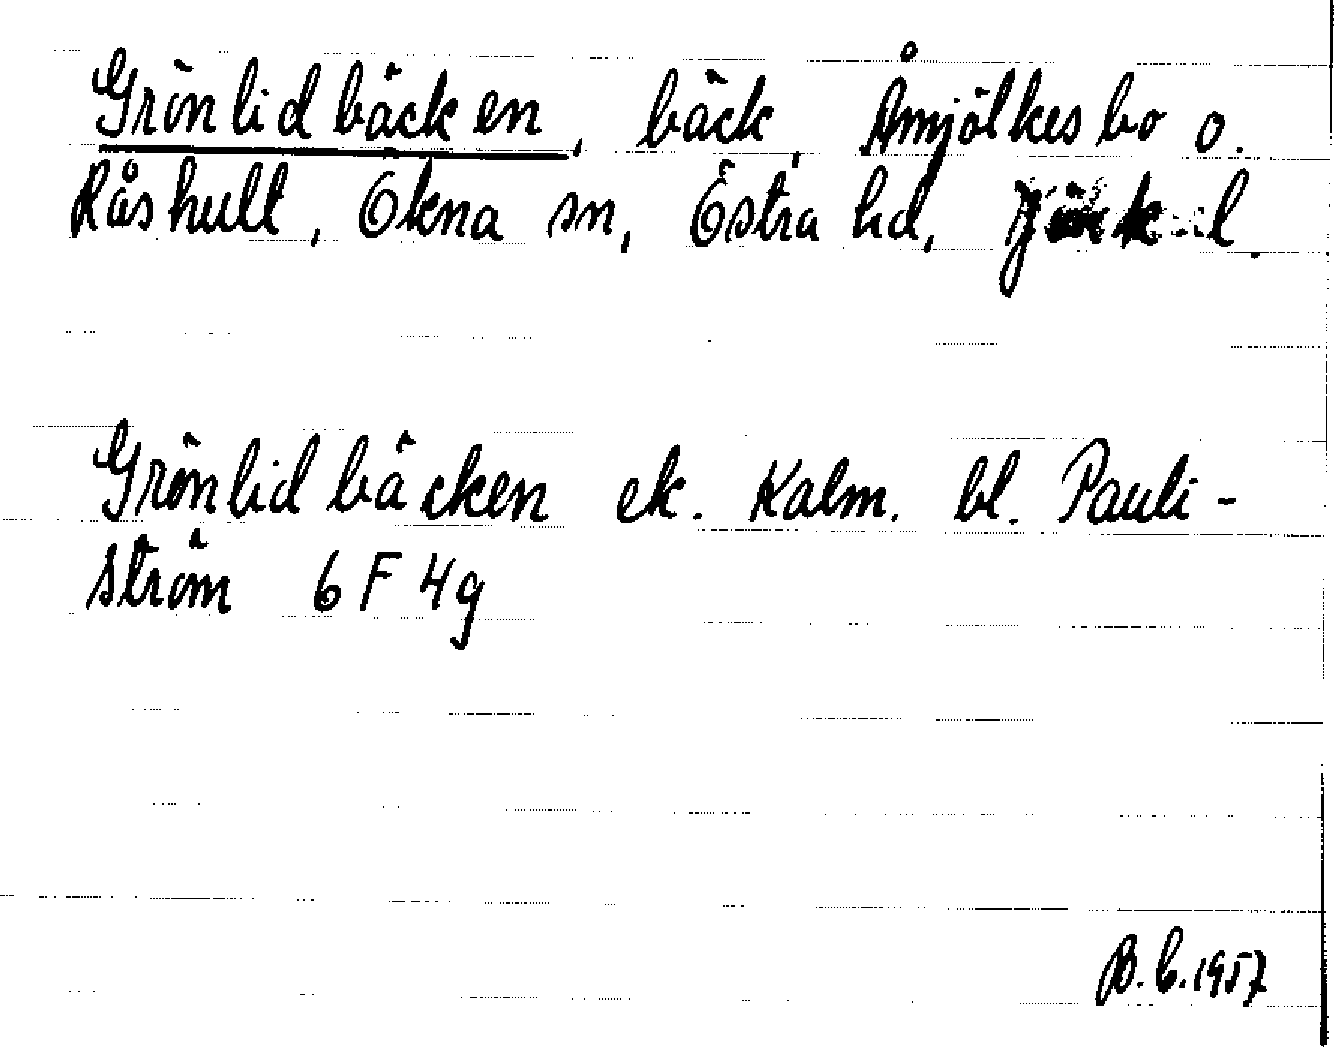 Grönlidbäcken, bäck, Åmjölkesbo o.
Råshult, Ökna sn, Östra hd, Jönk. l.
Grönlidbäcken ek. Kalm. bl. Pauli-
ström 6 F 4g
B. C. 1957